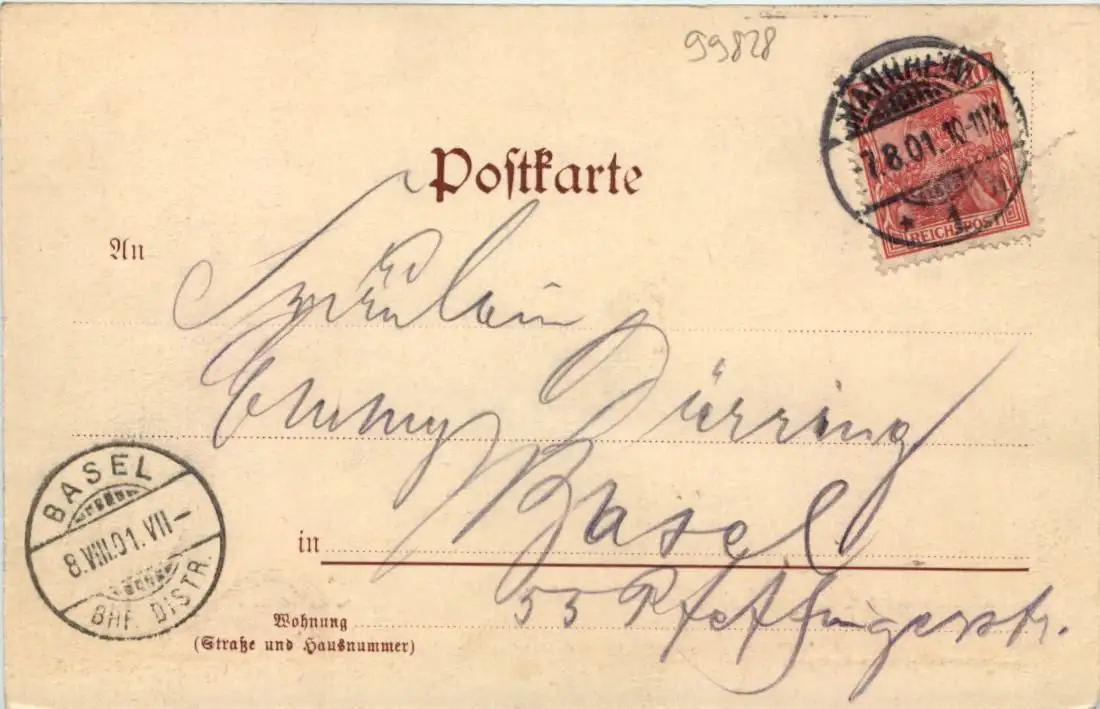 99828
MANNHEIM
7.8.01. 10-11V.
* 1
REICHSPOST
Postkarte
An
Fräulein
Emmy Dürring
in Basel
Wohnung
(Straße und Hausnummer)
55 Pfeffingerstr.
BASEL
8.VIII.01. VII-
BHF. DISTR.